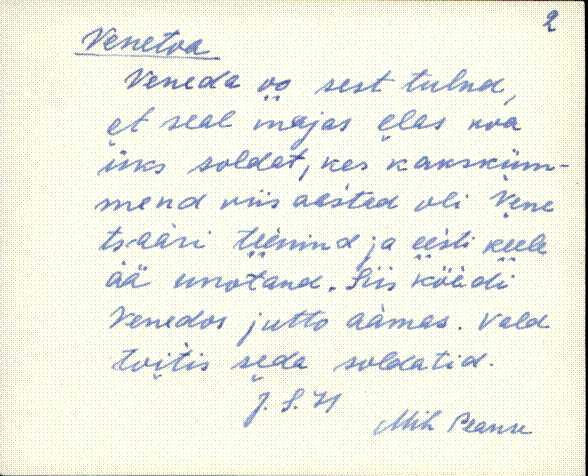 2
Venetoa
Veneda oo sest tulnd,
et seal majas elas koa
üks soldat, kes kaksküm-
mend viis aastad oli Vene
tsaari tiènind ja eesti keele
ää unotand. Siis köèdi
Venedos jutto aàmas. Vald
toitis seda soldatid.
J. S. H
Mih